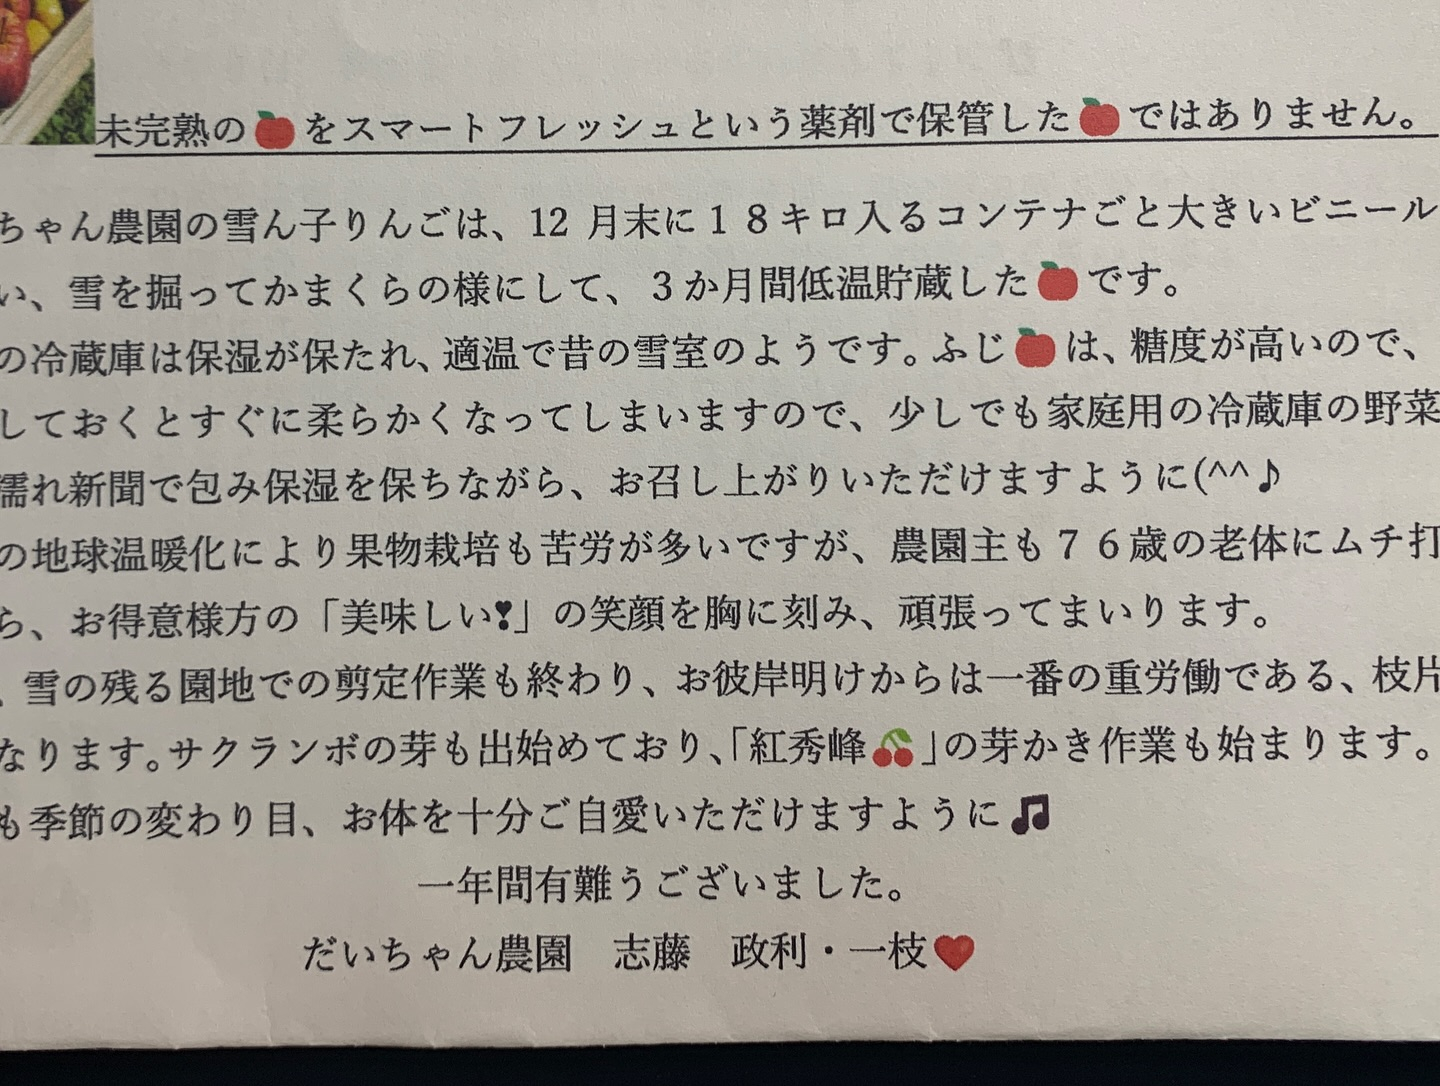 未完熟の🍎をスマートフレッシュという薬剤で保管した🍎ではありません。
ちゃん農園の雪ん子りんごは、12 月末に１８キロ入るコンテナごと大きいビニール
い、雪を掘ってかまくらの様にして、３か月間低温貯蔵した🍎です。
の冷蔵庫は保湿が保たれ、適温で昔の雪室のようです。ふじ🍎は、糖度が高いので、
しておくとすぐに柔らかくなってしまいますので、少しでも家庭用の冷蔵庫の野菜
濡れ新聞で包み保湿を保ちながら、お召し上がりいただけますように(^^♪
の地球温暖化により果物栽培も苦労が多いですが、農園主も７６歳の老体にムチ打
ら、お得意様方の「美味しい❣」の笑顔を胸に刻み、頑張ってまいります。
、雪の残る園地での剪定作業も終わり、お彼岸明けからは一番の重労働である、枝片
なります。サクランボの芽も出始めており、「紅秀峰🍒」の芽かき作業も始まります。
も季節の変わり目、お体を十分ご自愛いただけますように🎵
一年間有難うございました。
だいちゃん農園　志藤　政利・一枝❤